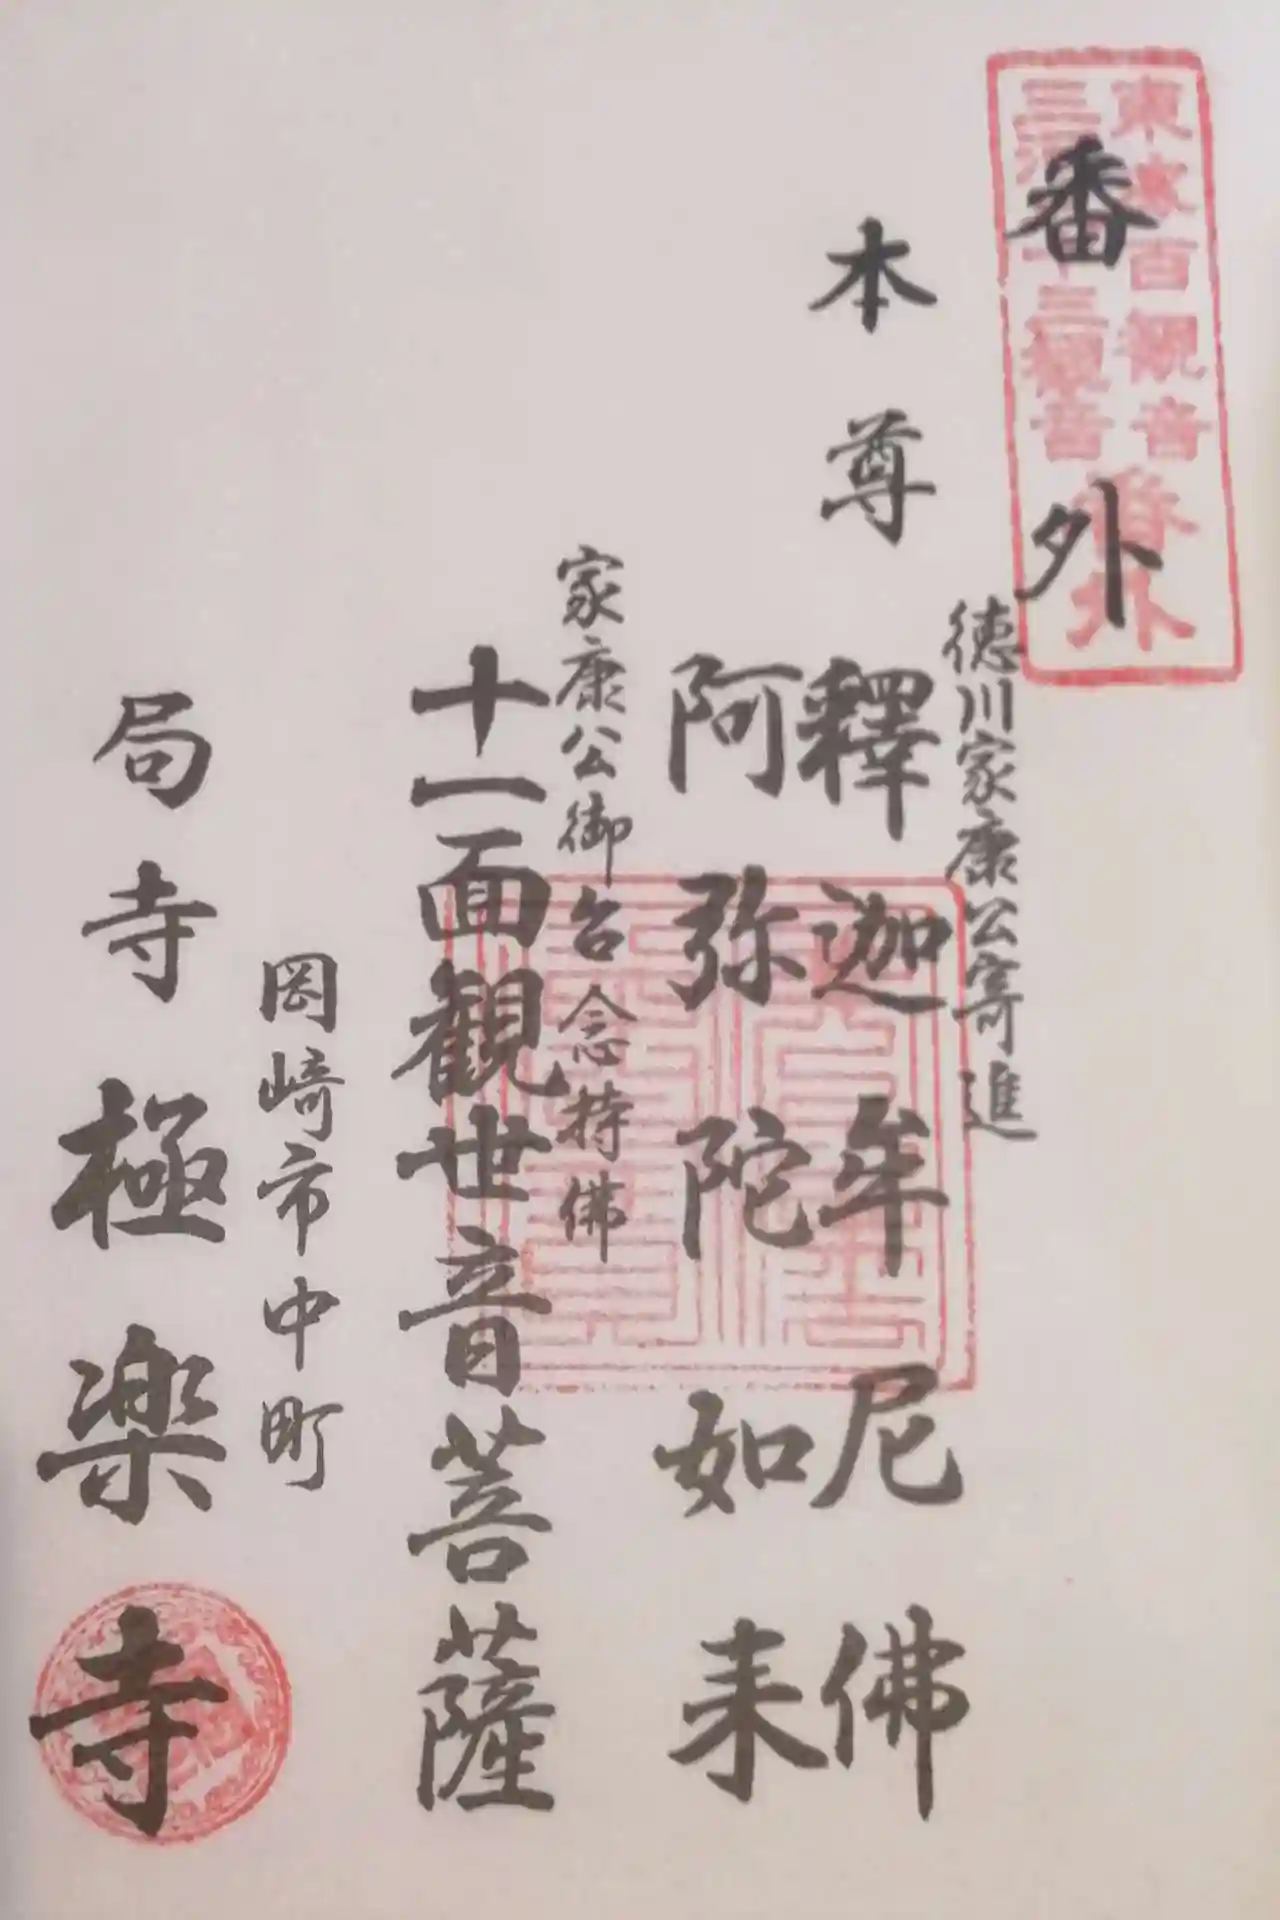 東海百観音
三河三十三観音
番外
番外
徳川家康公寄進
本尊
釋迦牟尼佛
阿弥陀如来
家康公御台念持佛
十一面観世音菩薩
岡崎市中町
局寺極楽寺